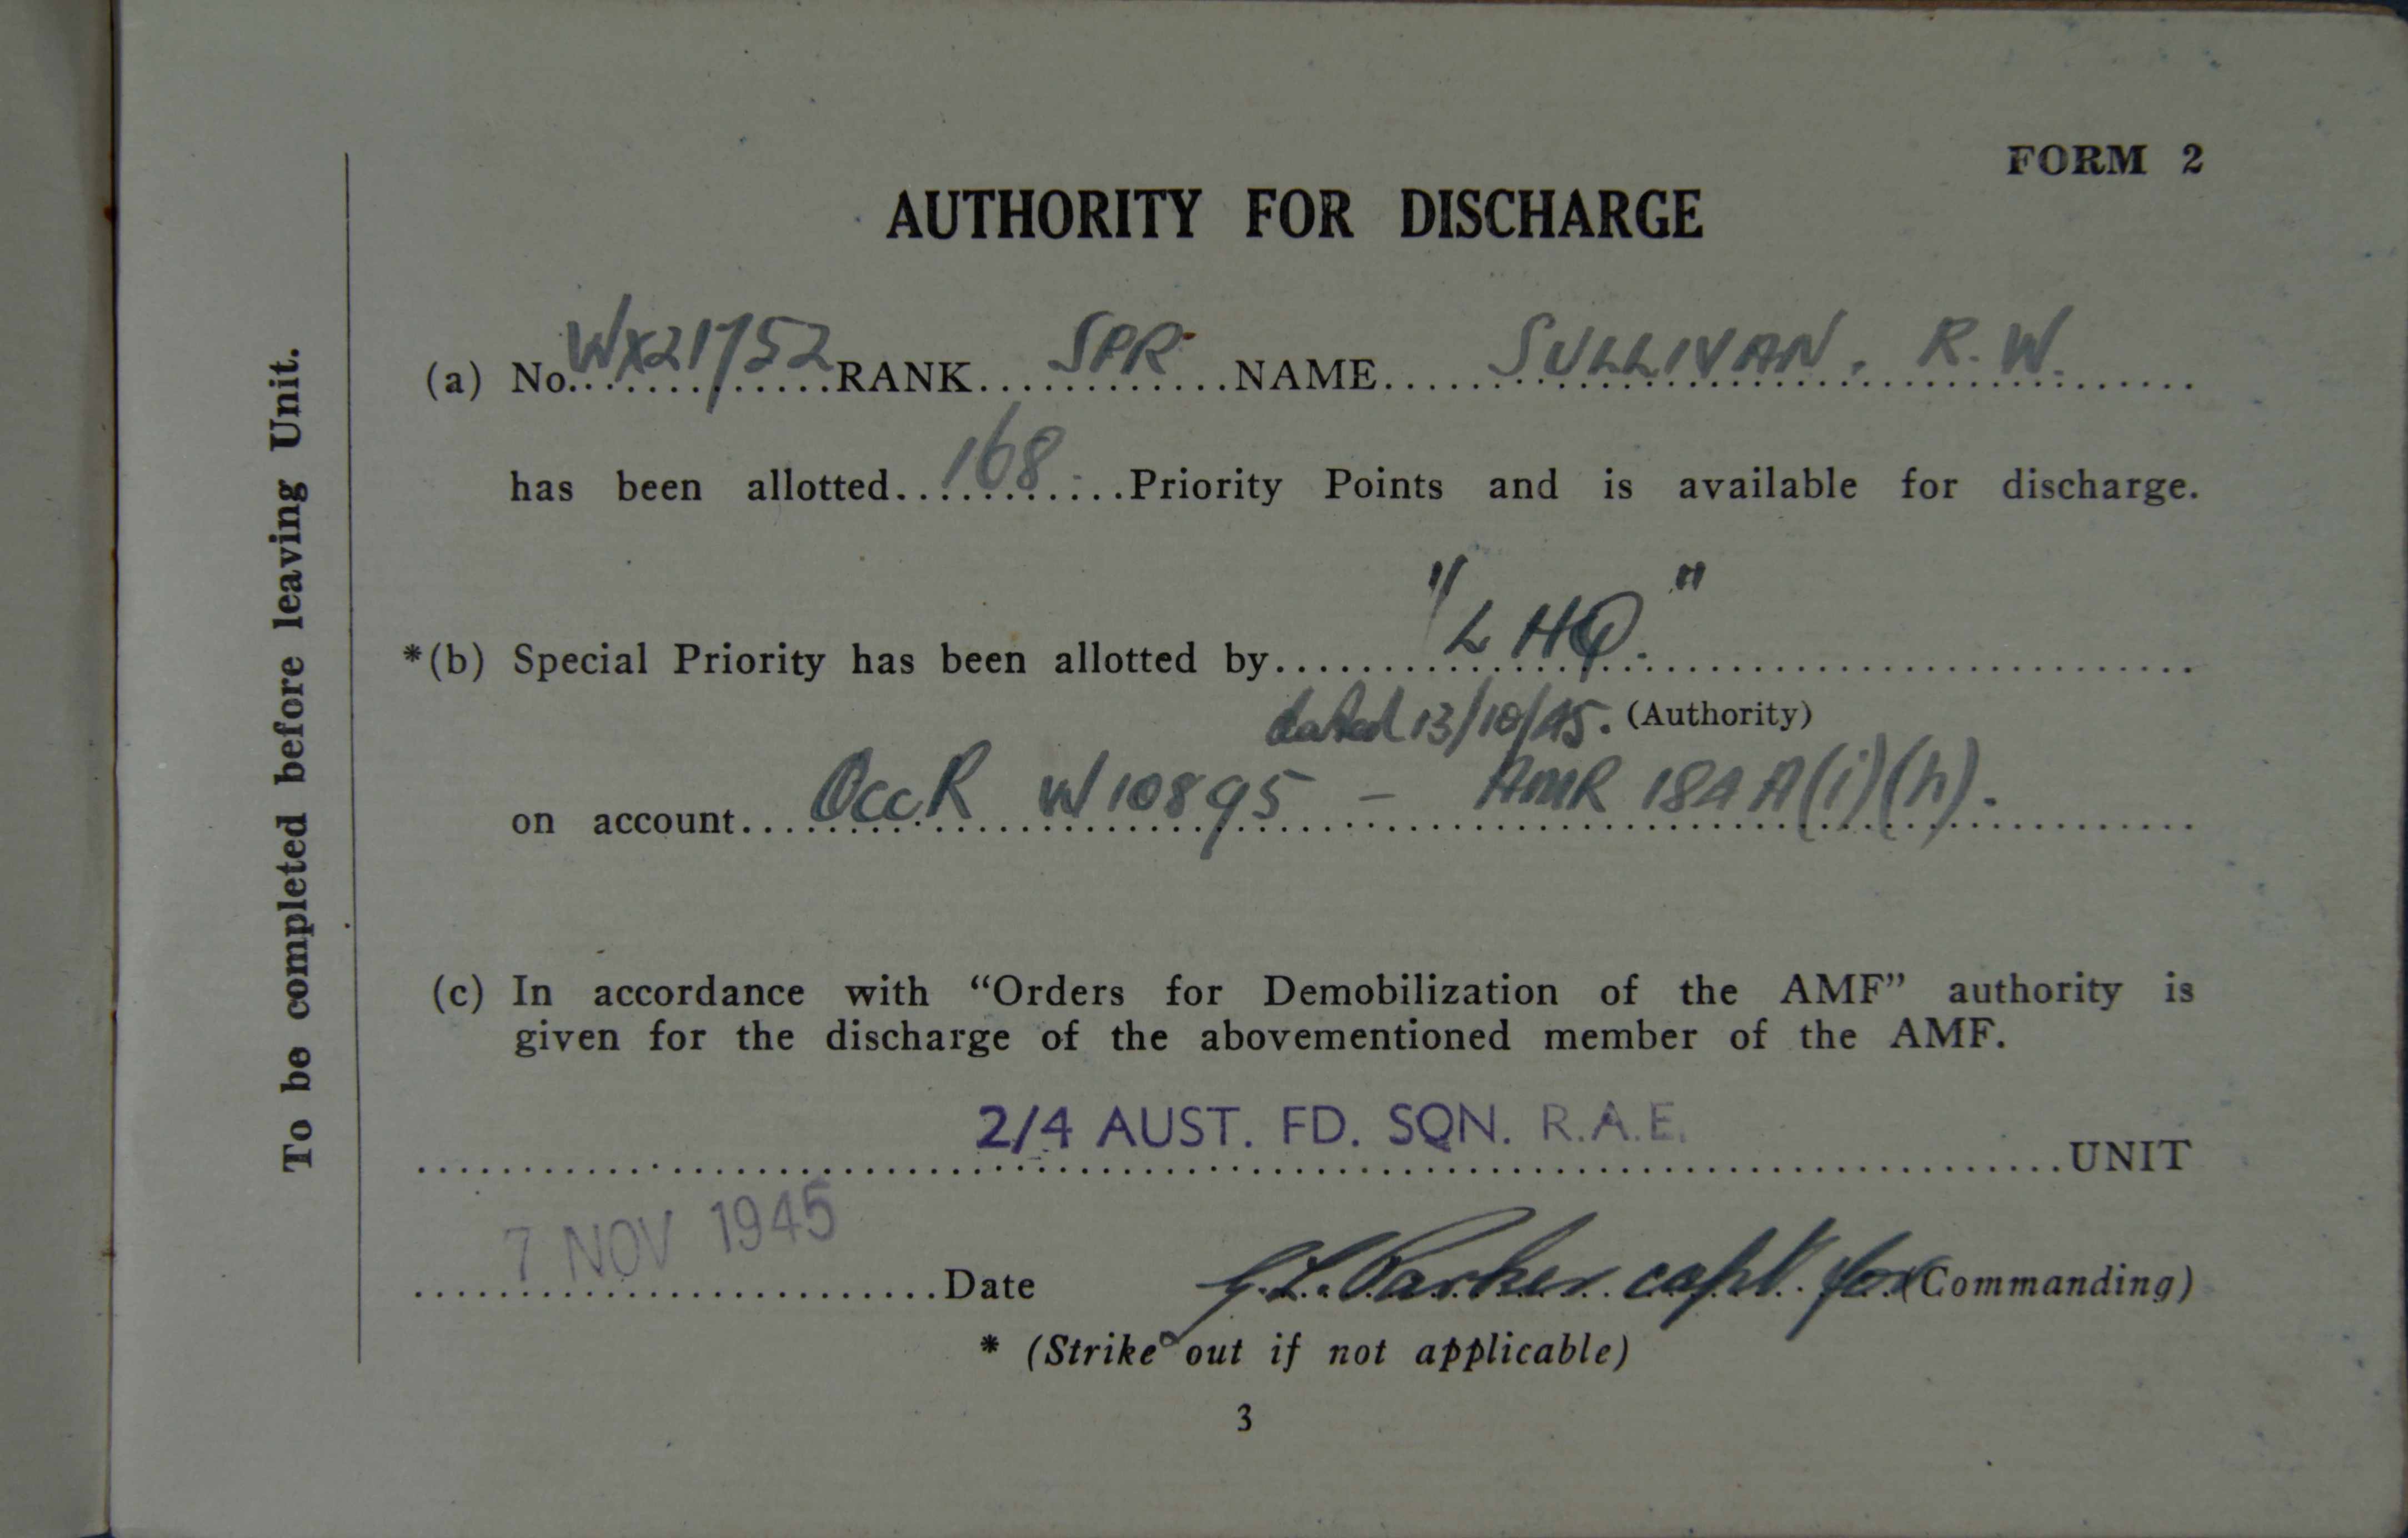 FORM 2
AUTHORITY FOR DISCHARGE
To be completed before leaving Unit.
(a) No. WX21752 RANK SPR NAME SULLIVAN. R. W.
has been allotted 168 Priority Points and is available for discharge.
*(b) Special Priority has been allotted by "L HQ."
dated 13/10/45. (Authority)
on account OccR W10895 - AMR 184 A(i)(h).
(c) In accordance with “Orders for Demobilization of the AMF” authority is
given for the discharge of the abovementioned member of the AMF.
2/4 AUST. FD. SQN. R.A.E. UNIT
7 NOV 1945
Date G.L. Parker capt. for (Commanding)
* (Strike out if not applicable)
3